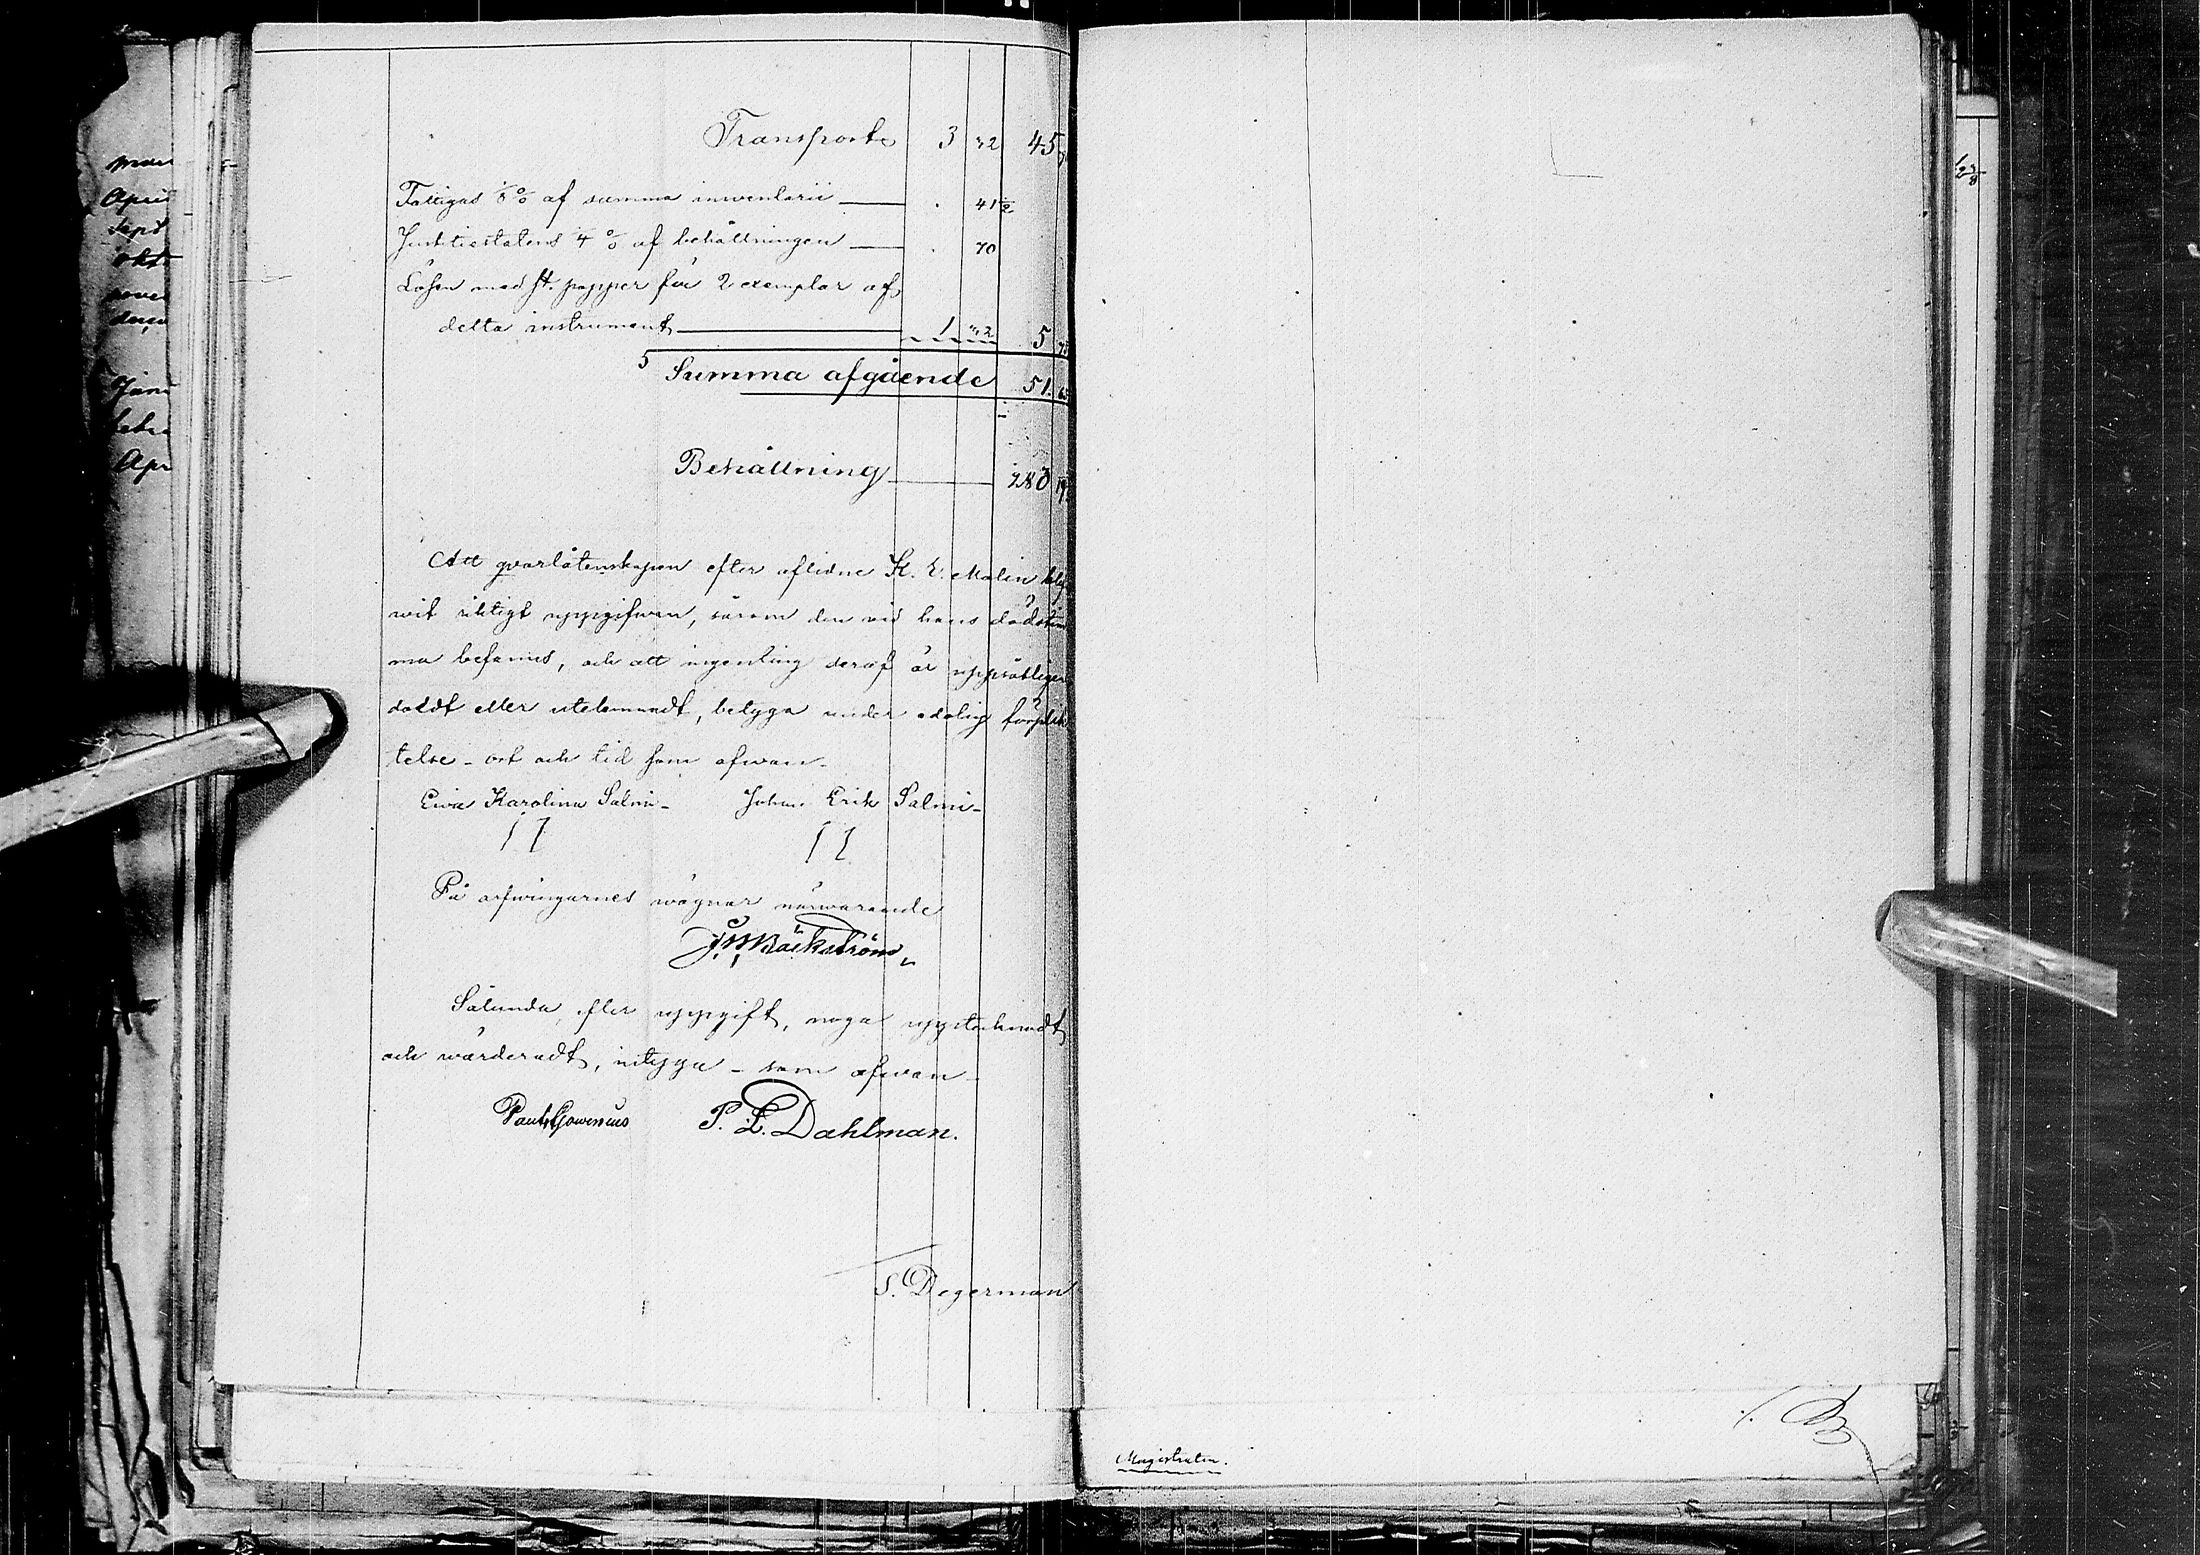 mar
April
Sept
okt
nove
decem
Janu
febr
Apr
Transporte 3 32 45
Fattigas 1/8 % af summa inventarii . 41 1/2
Justitiestatens 1/4 % af behållningen . 70
Lösen med st. papper för 2 exemplar af
detta instrument 1 32 5
5 Summa afgående 51.
Behållning 280 19
Att qvarlåtenskapen efter aflidne K. E. Malin blif
wit riktigt uppgifwen, sårom den vid hans dödstim
ma befanns, och att ingenting deraf är uppsåtligen
doldt eller utelemnadt, betyga under edelig förplik
telse _ ort och tid som ofwan _
Ewa Karolina Salmi _ Johan Erik Salmi _
På arfwingarnes wägnar närwarande
Bäckström
Sålunda, efter uppgift, noga upptecknadt
och wärderadt, intyga _ som ofwan _
P. L. Dahlman.
S. Degerman
Magistraten.